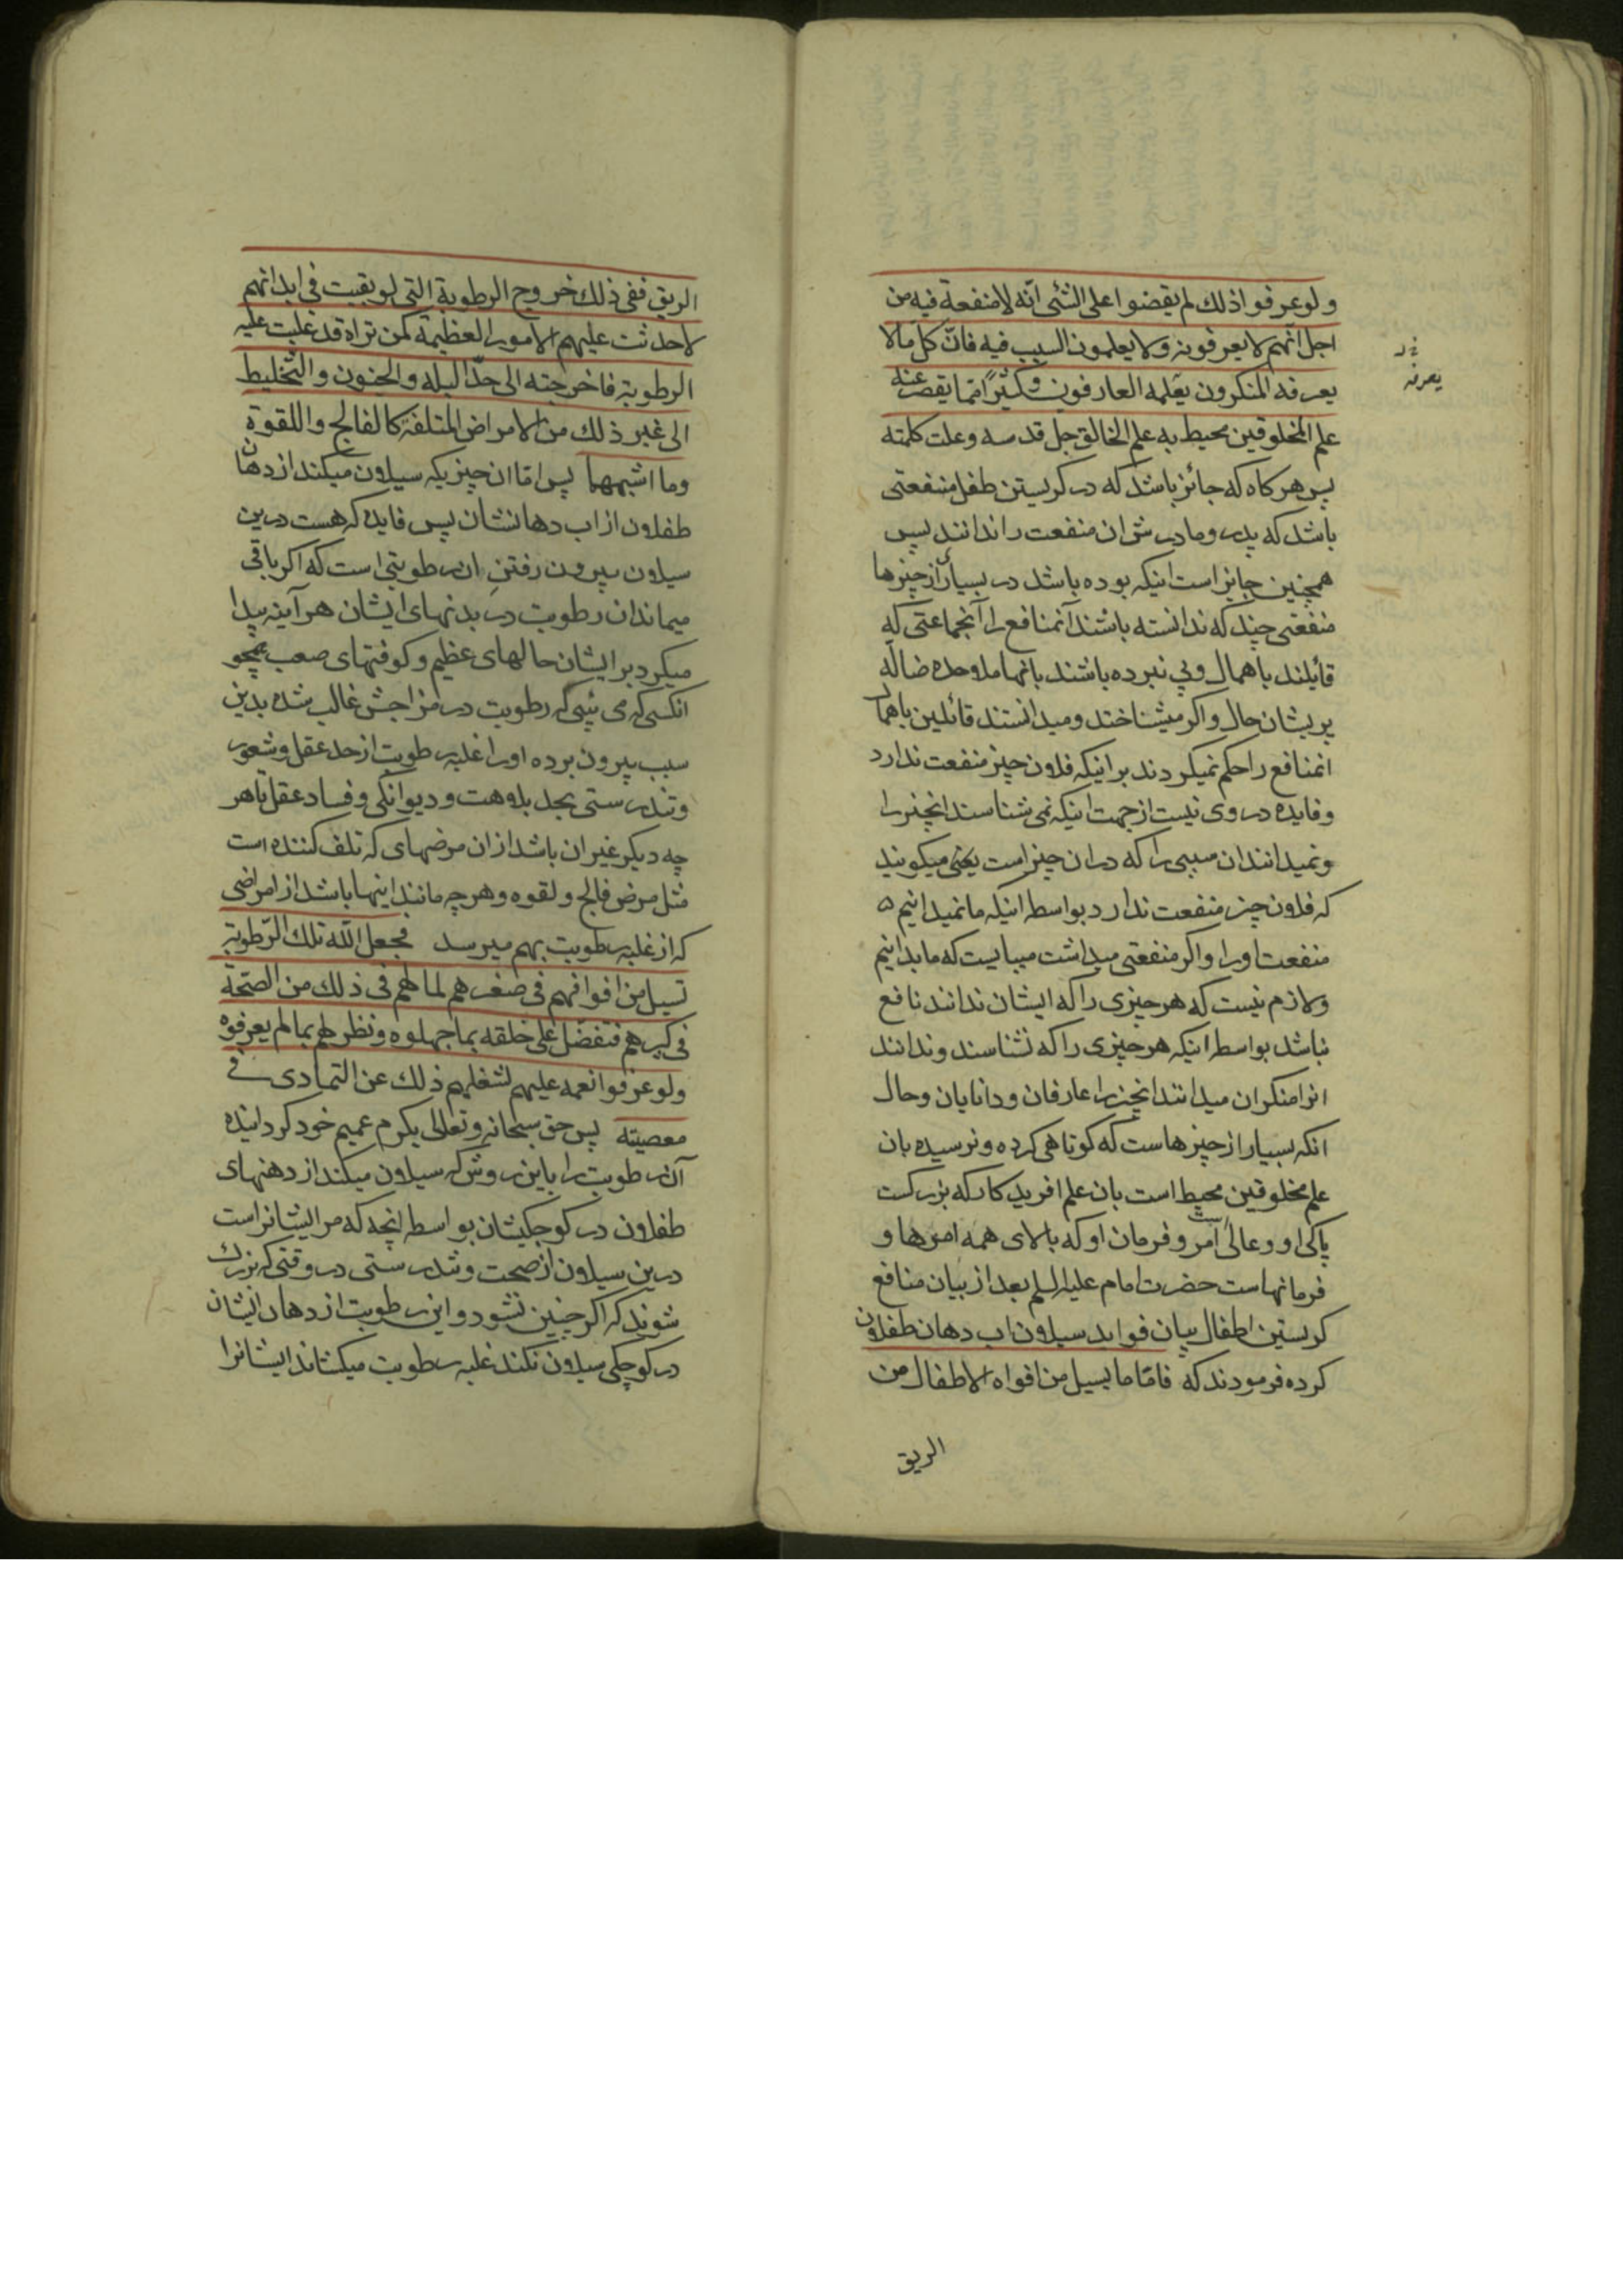 ولو عرفوا ذلك لم يقضوا على الشئ انّه لا منفعة فيه من
اجل انّهم لا يعرفونه ولا يعلمون السبب فيه فانّ كل ما لا
يعرفه المنكرون يعلمه العارفون وكثيرًا ممّا يقصر عنه
علم المخلوقين محيط به علم الخالق جل قدسه وعلت كلمته
پس هركاه كه جائز باشد كه در كريستن طفل منفعتى
باشد كه پدر و مادرش ان منفعت را ندانند پس
همچنين جايز است اينكه بوده باشد در بسيارى از چيزها
منفعتى چند كه ندانسته باشند آنمنافع را آنجماعتى كه
قائلند باهمال و پى نبرده باشند بانها ملاحده ضالّه
پريشان حال و اكر ميشناختند و ميدانستند قائلين باهمال
انمنافع را حكم نميكردند بر اينكه فلان چيز منفعت ندارد
و فايده در وى نيست از جهت اينكه نمى شناسند انچيز را
و نميدانند ان سببى را كه در ان چيز است يعنى ميكويند
كه فلان چيز منفعت ندارد بواسطه اينكه ما نميدانيم
منفعت او را و اكر منفعتى ميداشت ميبايست كه ما بدانيم
و لازم نيست كه هر چيزى را كه ايشان ندانند نافع
نباشد بواسطه اينكه هر چيزى را كه نشناسند و ندانند
انرا منكران ميدانند انچيز را عارفان و دانايان و حال
انكه بسيار از چيزهاست كه كوتاهى كرده و نرسيده بان
علم مخلوقين محيط است بان علم افريدكار كه بزركست
پاكى او و عاليست امر و فرمان او كه بالاى همه امرها و
فرمانهاست حضرت امام عليه السلم بعد از بيان منافع
كريستن اطفال بيان فوايد سيلان اب دهان طفلان
كرده فرمودند كه فامّا ما يسيل من افواه الاطفال من
الريق
يعرفه
الريق ففى ذلك خروج الرطوبة التى لو بقيت فى ابدانهم
لاحدثت عليهم الامور العظيمة كمن تراه قد غلبت عليه
الرطوبة فاخرجته الى حدّ البله والجنون والتّخليط
الى غير ذلك من الامراض المتلفة كالفالج واللقوة
وما اشبههما پس امّا ان چيزيكه سيلان ميكند از دهان
طفلان از اب دهانشان پس فايده كه هست درين
سيلان بيرون رفتن ان رطوبتى است كه اكر باقى
ميماند ان رطوبت در بدنهاى ايشان هر آينه پيدا
ميكرد بر ايشان حالهاى عظيم و كوفتهاى صعب همچو
انكسى كه مى بينى كه رطوبت در مزاجش غالب شده بدين
سبب بيرون برده او را غلبه رطوبت از حد عقل و شعور
و تندرستى بحد بلاهت و ديوانكى و فساد عقل تا هر
چه ديكر غير ان باشد از ان مرضهاى كه تلف كننده است
مثل مرض فالج و لقوه و هر چه مانند اينها باشد از امراضى
كه از غلبه رطوبت بهم ميرسد فجعل اللّه تلك الرّطوبة
تسيل من افواههم فى صغرهم لما لهم فى ذلك من الصّحّة
فى كبرهم فتفضّل على خلقه بما جهلوه و نظر لهم بما لم يعرفوه
ولو عرفوا نعمه عليهم لشغلهم ذلك عن التمادى فى
معصيته پس حق سبحانه و تعالى بكرم عميم خود كردانيده
آن رطوبت را باين روش كه سيلان ميكند از دهنهاى
طفلان در كوچكيشان بواسطه انچه كه مر ايشانراست
درين سيلان از صحت و تندرستى در وقتى كه بزرك
شوند كه اكر چنين نشود و اين رطوبت از دهان ايشان
در كوچكى سيلان نكند غلبه رطوبت ميكشاند ايشانرا